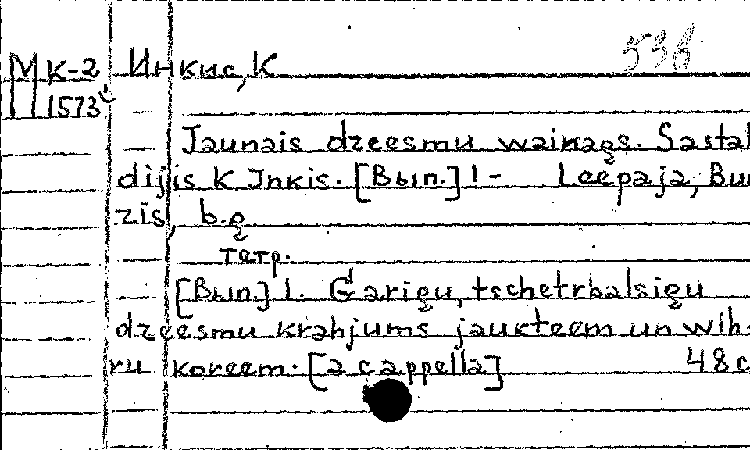 МК-2 Инкис, К 536
1573
Jaunais dzeesmu wainags. Sastah
dijis K Inkis. [Вып.] 1 - Leepaja, Bur
zis, b.g.
татр.
[Вып.] 1. Garigu, tschetrbalsigu
dzeesmu krahjums jaukteem un wih-
ru koreem. [a cappella] 48 с